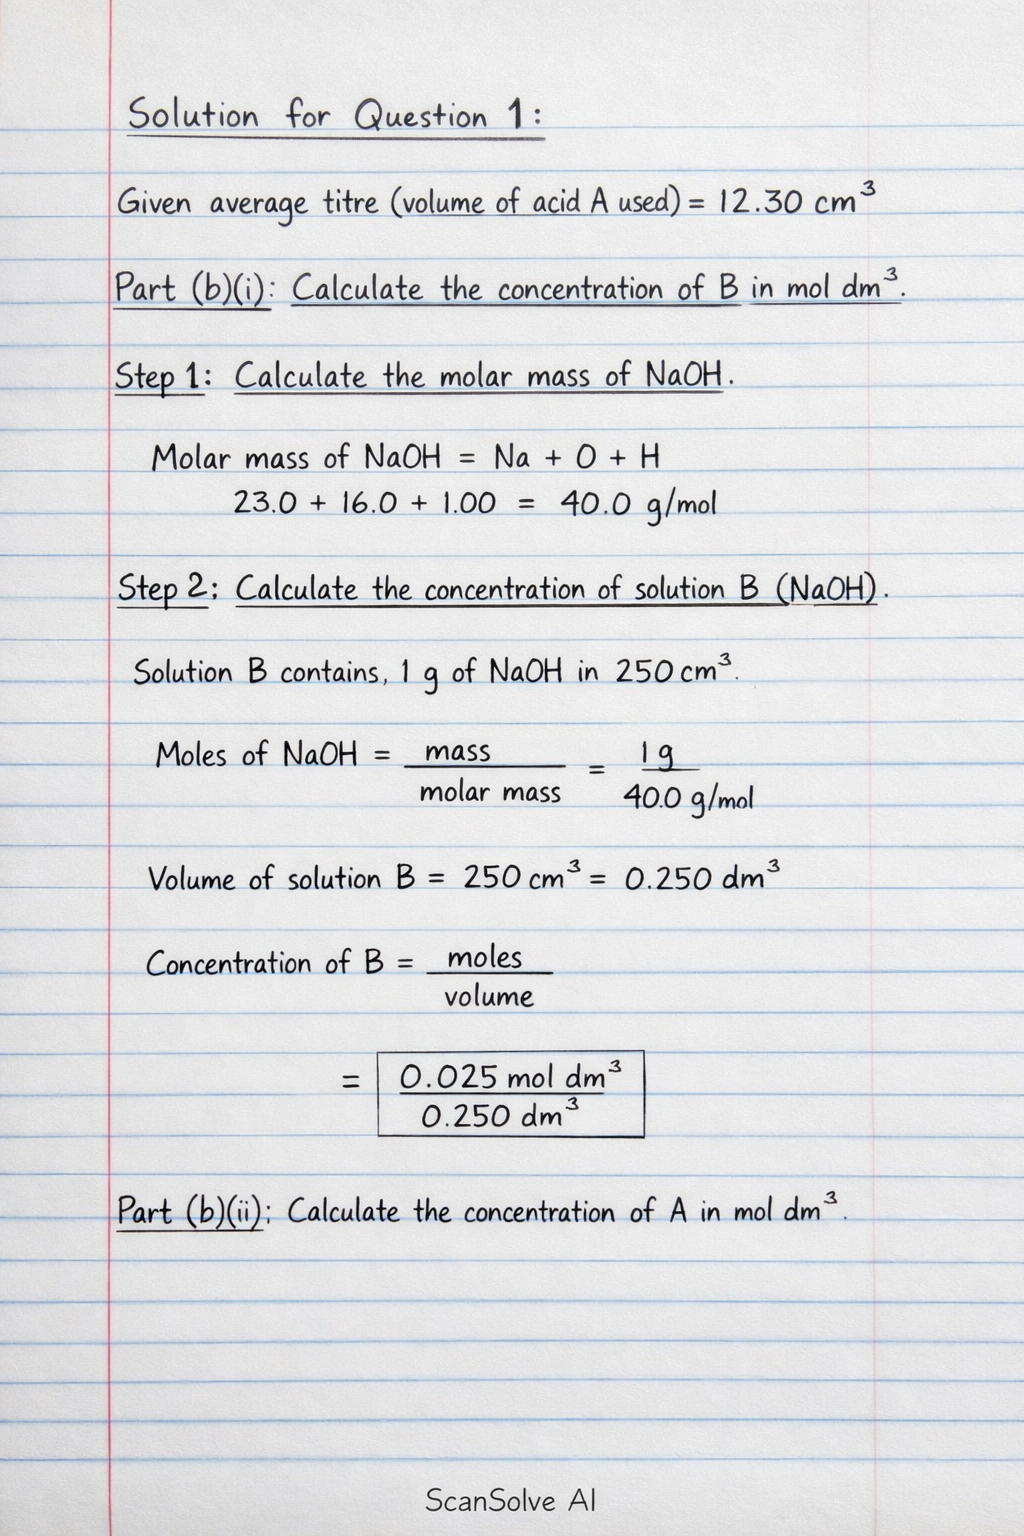 Solution for Question 1:
Given average titre (volume of acid A used) = 12.30 cm³
Part (b)(i): Calculate the concentration of B in mol dm³.
Step 1: Calculate the molar mass of NaOH.
Molar mass of NaOH = Na + O + H
23.0 + 16.0 + 1.00 = 40.0 g/mol
Step 2: Calculate the concentration of solution B (NaOH).
Solution B contains, 1 g of NaOH in 250 cm³.
Moles of NaOH = mass / molar mass = 1g / 40.0 g/mol
Volume of solution B = 250 cm³ = 0.250 dm³
Concentration of B = moles / volume
= 0.025 mol dm³ / 0.250 dm³
Part (b)(ii): Calculate the concentration of A in mol dm³.
ScanSolve AI